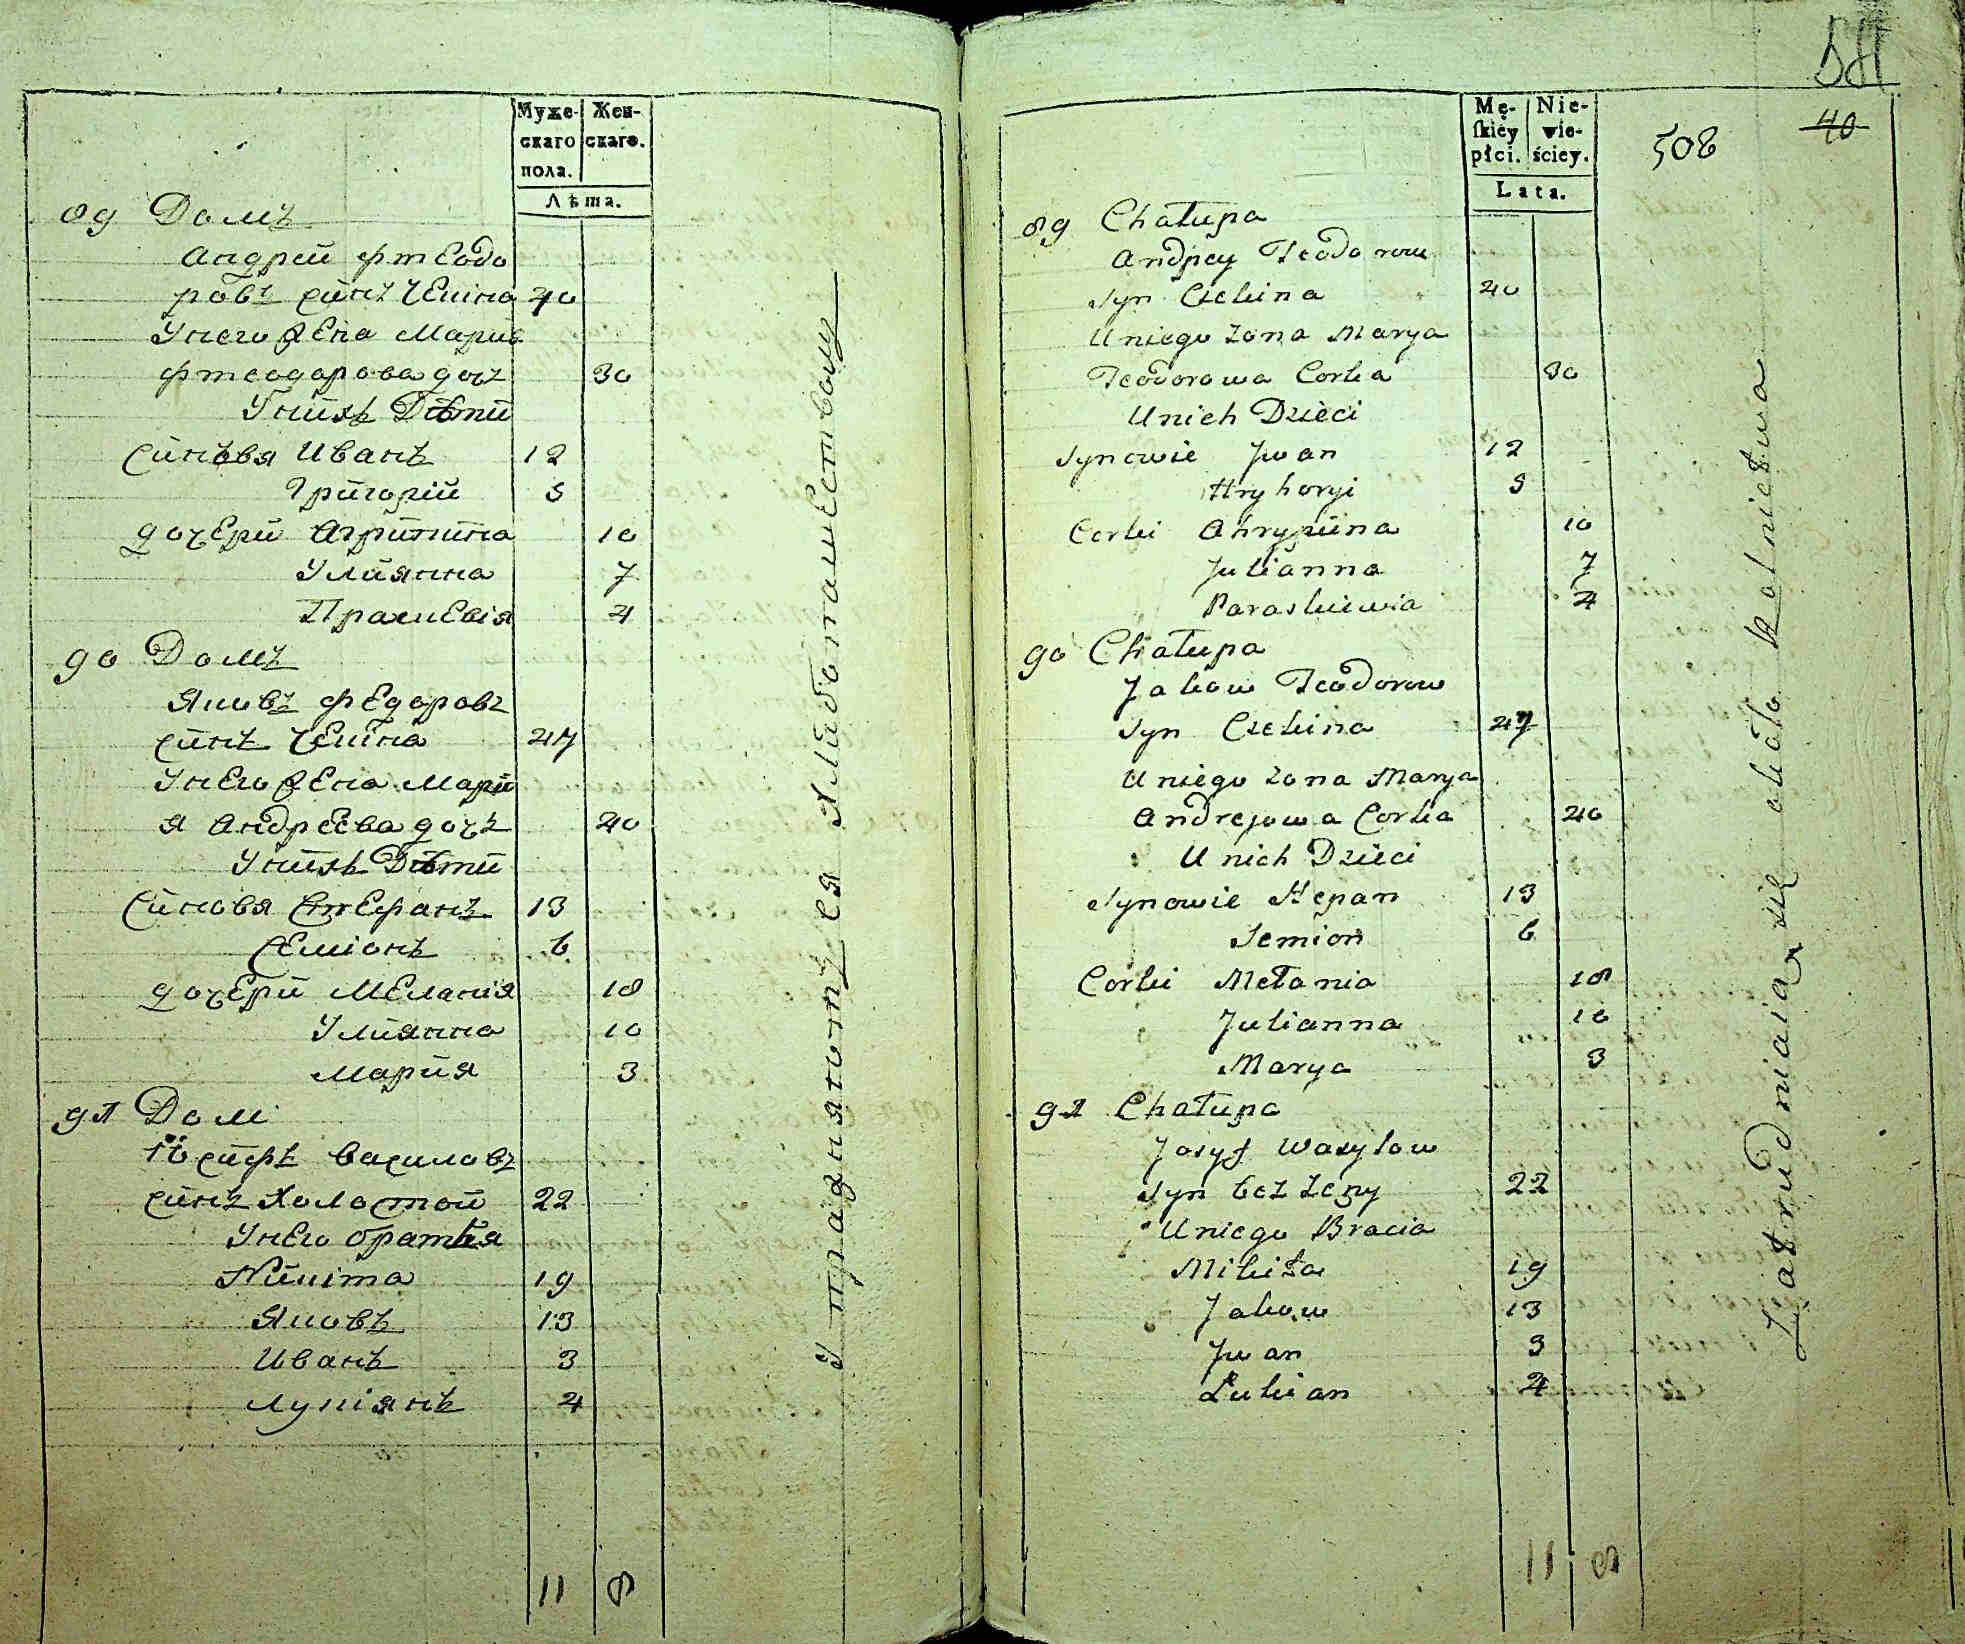 Муже-
скаго
пола.
Жен-
скаго.
Лѣта.
89 Домъ
Андрей фтеодо
ровъ синъ Чекіна 40
У него жена Мария
фтеодорова дочъ 30
У нихъ Дѣти
Синовя Иванъ 12
Григорій 5
дочери Агрипина 10
Улиянна 7
Праксевія 4
90 Домъ
Яковъ федоровъ
синъ Чекіна 47
У него жена Мари
я Андреева дочъ 40
У нихъ Дѣти
Синовя Стефанъ 13
Семіонъ 6
дочери Меланія 18
Улиянна 10
Мария 3
91 Домъ
Іосифъ Василовъ
синъ Холостой 22
У него братья
Микита 19
Яковъ 13
Иванъ 3
Лукіянъ 4
11 8
Упражняютъся хлиботашеством
58
40
508
Mę-
skiey
płci.
Nie-
wie-
ściey.
Lata.
89 Chałupa
Andrey Teodorow
Syn Czekina 40
U niego żona Marya
Teodorowa Corka 30
U nich Dzieci
Synowie Jwan 12
Hryhoryi 5
Corki Ahrypina 10
Julianna 7
Paraskiewia 4
90 Chałupa
Jakow Teodorow
Syn Czekina 47
U niego żona Marya
Andrejowa Corka 40
U nich Dzieci
Synowie Stepan 13
Semion 6
Corki Mełania 18
Julianna 10
Marya 3
91 Chałupa
Josyf Wasylow
Syn bez żeny 22
U niego Bracia
Mikita 19
Jakow 13
Jwan 3
Łukian 4
11 8
Zatrudniaią się około Rolnictwa